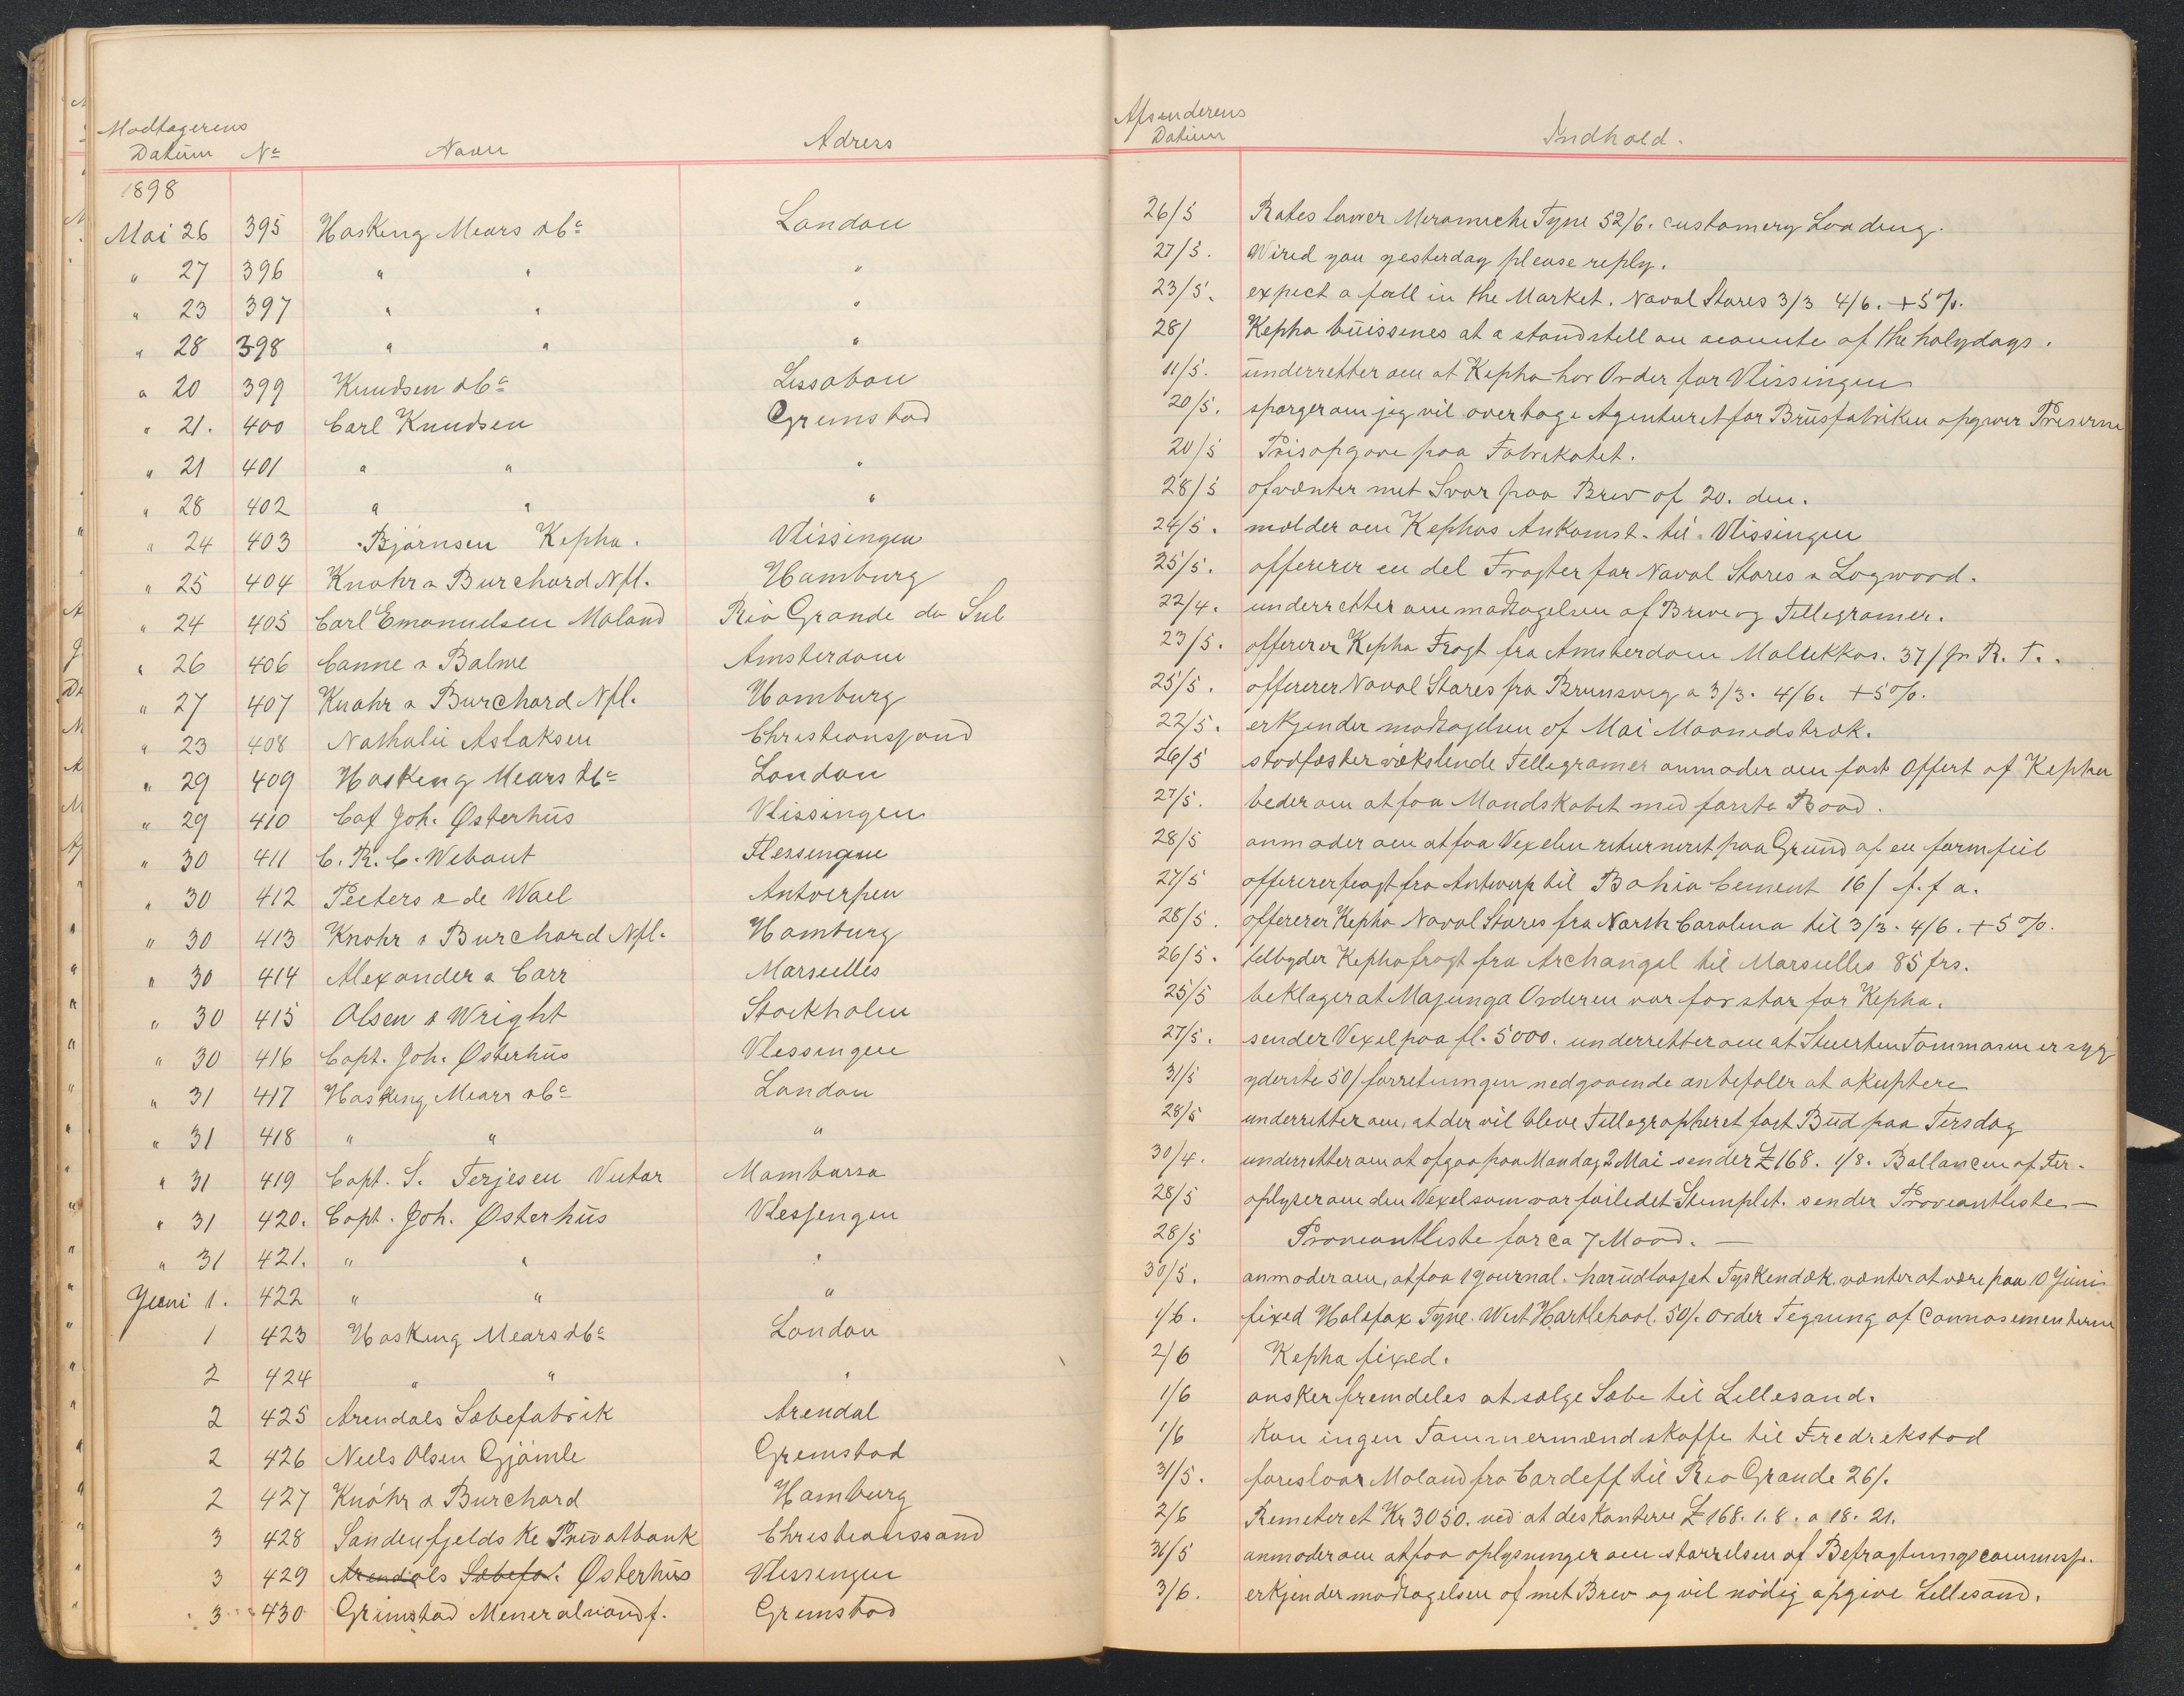 Modtagerens
Datum No Navn Adress
1898
Mai 26 395 Hasking Mears &Co London
" 27 396 " " "
" 23 397 " " "
" 28 398 " " "
" 20 399 Knudsen &Co Lissabon
" 21. 400 Carl Knudsen Grimstad
" 21 401 " " "
" 28 402 " " "
" 24 403 Bjørnsen Kepha. Vlissingen
" 25 404 Knohr & Burchard Nfl. Hamburg
" 24 405 Carl Emanuelsen Moland Rio Grande do Sul
" 26 406 Canne & Balme Amsterdam
" 27 407 Knohr & Burchard Nfl. Hamburg
" 23 408 Nathalie Aslaksen Christianssand
" 29 409 Hasking Mears &Co London
" 29 410 Cap Joh. Østerhus Vlissingen
" 30 411 C. R. C. Wibaut Flessingen
" 30 412 Peeters & de Wael Antverpen
" 30 413 Knohr & Burchard Nfl. Hamburg
" 30 414 Alexander & Carr Marseilles
" 30 415 Olsen & Wright Stockholm
" 30 416 Capt. Joh. Østerhus Vlessingen
" 31 417 Hasking Mears &Co London
" 31 418 " " "
" 31 419 Capt. S. Terjesen Victor Mombassa
" 31 420. Capt. Joh. Østerhus Vlessengen
" 31 421. " " "
Juni 1. 422 " " "
1 423 Hasking Mears &Co London
2 424 " " "
2 425 Arendals Sæbefabrik Arendal
2 426 Niels Olsen Gjømle Gremstad
2 427 Knöhr & Burchard Hamburg
3 428 Søndenfjeldske Privatbank Christianssand
3 429 Arendals Sæbefa. Østerhus Vlessingen
3 430 Grimstad Mineralvandf. Gremstad
Afsenderens
Datum Indhold.
26/5 Rates lower Meramichi Tyne 52/6. customery Loading.
27/5. Wired you yesterday please reply.
23/5. expect a fall in the Market. Naval Stores 3/3 4/6. +5%.
28/ Kepha buissenes at a standstell on acounte of the holydays.
11/5. underretter om at Kepha har Order for Vlissingen
20/5. spørger om jeg vil overtage Agenturet for Brusfabriken opgiver Priserne
20/5 Prisopgave paa Fabrikatet.
28/5 afventer mit Svar paa Brev af 20. den.
24/5. mælder om Kephas Ankomst til Vlissingen
25/5. offererer en del Fragter for Naval Stores & Logwood.
22/4. underretter om modtagelsen af Breve og Tellegramer.
23/5. offererer Kepha Fragt fra Amsterdam Molukkas. 37/ pr R. T.
25/5. offererer Naval Stares fra Brunsvig a 3/3. 4/6. +5%.
22/5. erkjender modtagelsen af Mai Maanedstræk.
26/5 stadfæster vekslende Tellegramer anmoder om fast Offert af Kepha
27/5. beder om at faa Mandskabet med første Baad.
28/5 anmoder om at faa Vexelen returneret paa Grund af en formfeil
27/5 offererer fragt fra Antwerp til Bahia Cement 16/ f. f a.
28/5. offererer Kepha Naval Stores fra North Carolina til 3/3. 4/6. +5%.
26/5. tilbyder Kepha fragt fra Archangel til Marseilles 85 frs.
25/5 beklager at Majunga Orderen var for stor for Kepha.
27/5. sender Vexel paa fl. 5000. underretter om at Stuerten Tommasen er syg
31/5 yderste 50/ forretningen nedgaaende anbefaler at akseptere
28/5 underretter om, at der vil bleve Tellegrapheret fast Bud paa Tirsdag
30/4. underretter om at afgaa paa Mandag 2 Mai sender £168. 1/8. Ballancen af Fer.
28/5 oplyser om den Vexel som var feiledet Stemplet. sender Proveantliste —
28/5 Proveantliste for ca 7 Maad. —
30/5. anmoder om, at faa 1 journal. har udlosset Tyskendæk. venter at være paa 10 Juni
1/6. fixed Halefax Tyne. West Hartlepool. 50/. order Tegning af Connosementerne
2/6 Kepha fixed.
1/6 ønsker fremdeles at sælge Sæbe til Lillesand.
1/6 Kan ingen Tømmermænd skaffe til Fredrekstad
31/5. foreslaar Moland fra Cardeff til Rio Grande 26/.
2/6 Remeteret Kr 3050. ved at deskontere £168. 1. 8. a 18. 21.
31/5 anmoder om at faa oplysninger om størrelsen af Befragtningscommisj.
3/6. erkjender modtagelsen af mit Brev og vil nødig opgive Lillesand.